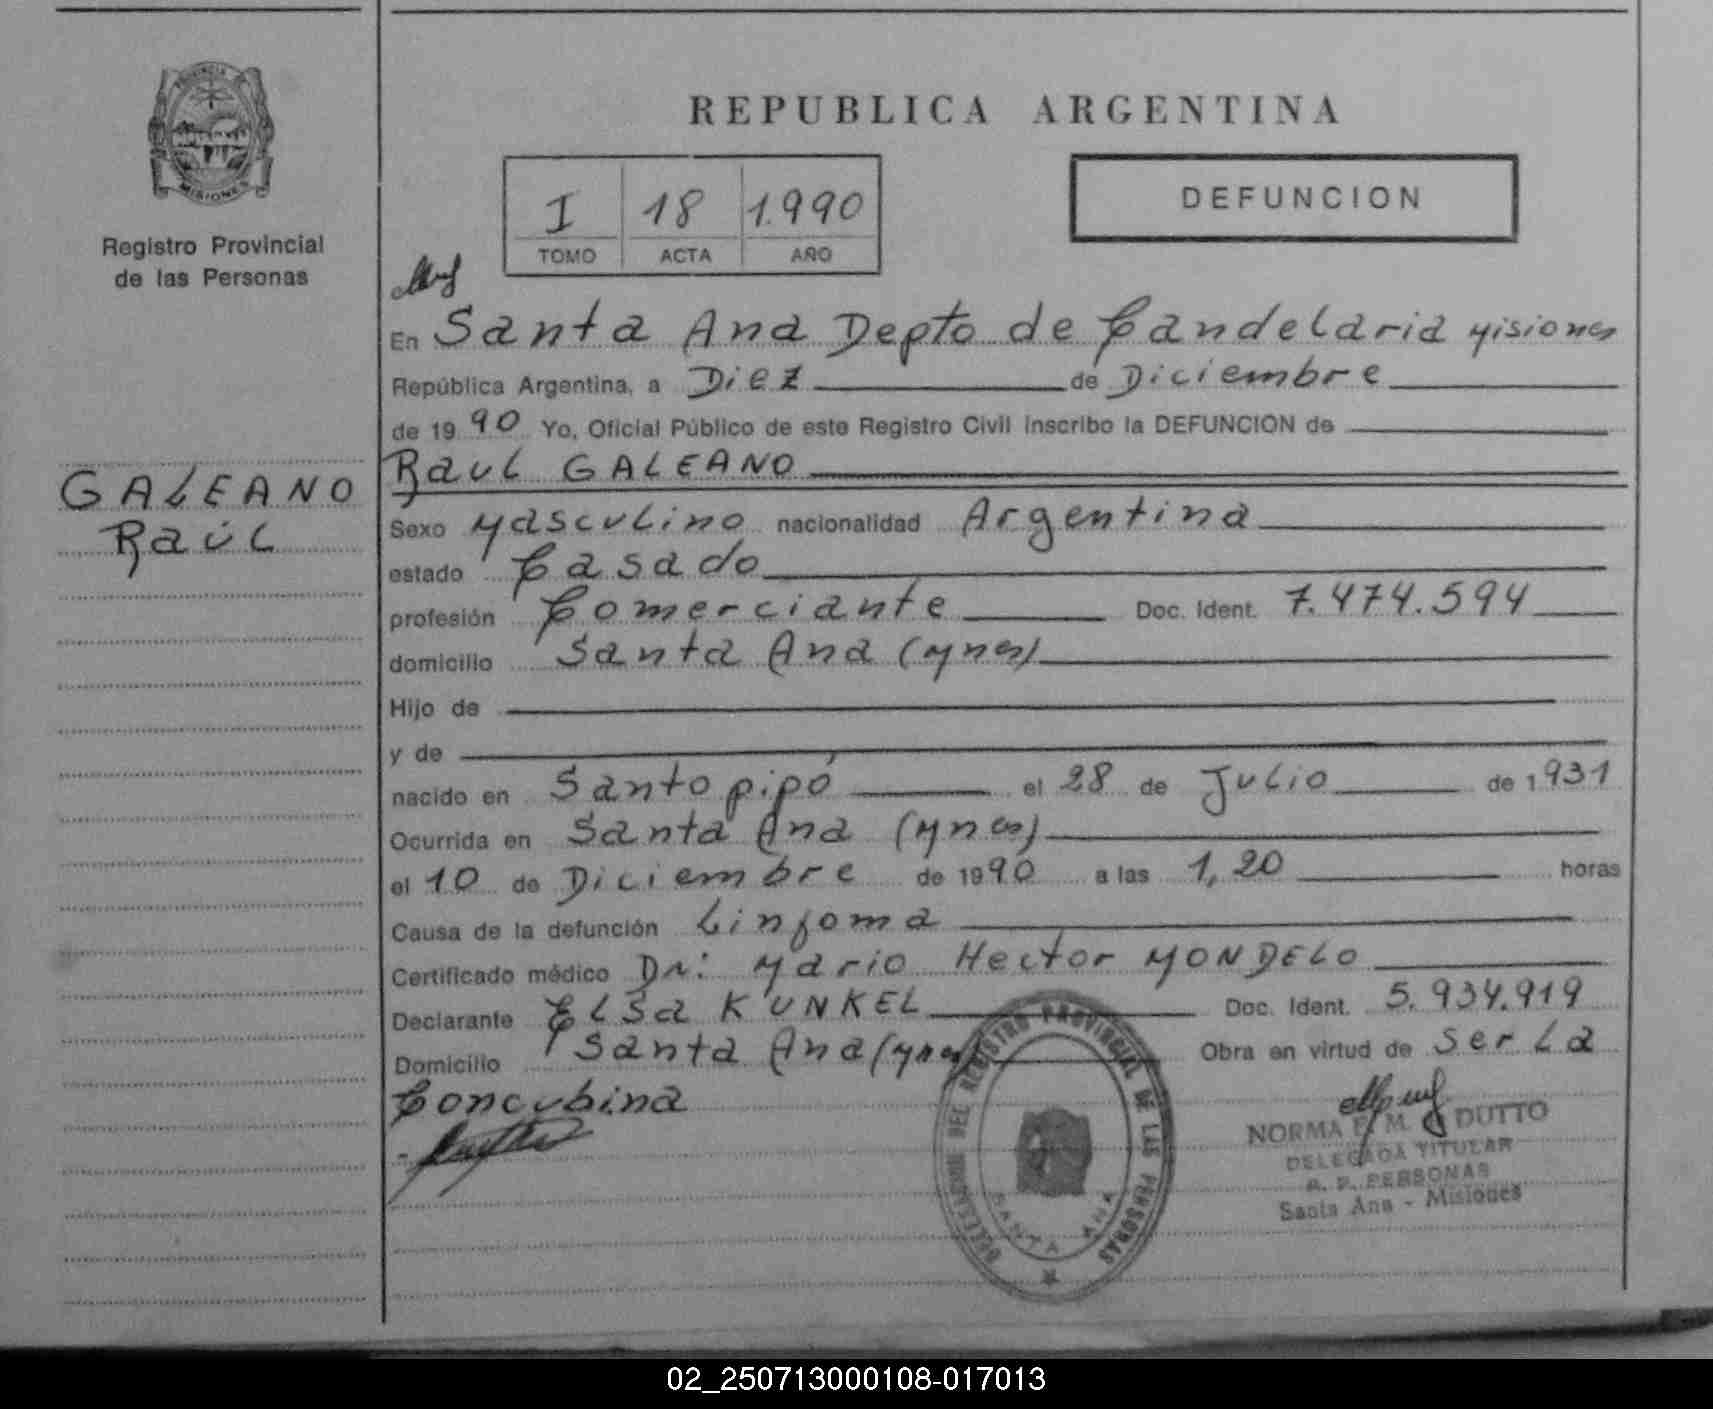 PROVINCIA DE
MISIONES
Registro Provincial
de las Personas
GALEANO
Raúl
REPUBLICA ARGENTINA
I 18 1.990
TOMO ACTA AÑO
DEFUNCION
En Santa Ana Depto de Candelaria Misiones
República Argentina, a Diez de Diciembre
de 1990 Yo, Oficial Público de este Registro Civil inscribo la DEFUNCION de
Raul GALEANO
Sexo Masculino nacionalidad Argentina
estado Casado
profesión Comerciante Doc. Ident. 7.474.594
domicilio Santa Ana (Mnes)
Hijo de
y de
nacido en Santo pipó el 28 de Julio de 1931
Ocurrida en Santa Ana (Mnes)
el 10 de Diciembre de 1990 a las 1,20 horas
Causa de la defunción Linfoma
Certificado médico Dr: Mario Hector MONDELO
Declarante ELSa KUNKEL Doc. Ident. 5.934.919
Domicilio Santa Ana (Mnes) Obra en virtud de Ser La
Concubina
DEL REGISTRO PROVINCIAL DE LAS PERSONAS
SANTA ANA
NORMA M. DUTTO
DELEGADA TITULAR
R. P. PERSONAS
Santa Ana - Misiones
02_250713000108-017013